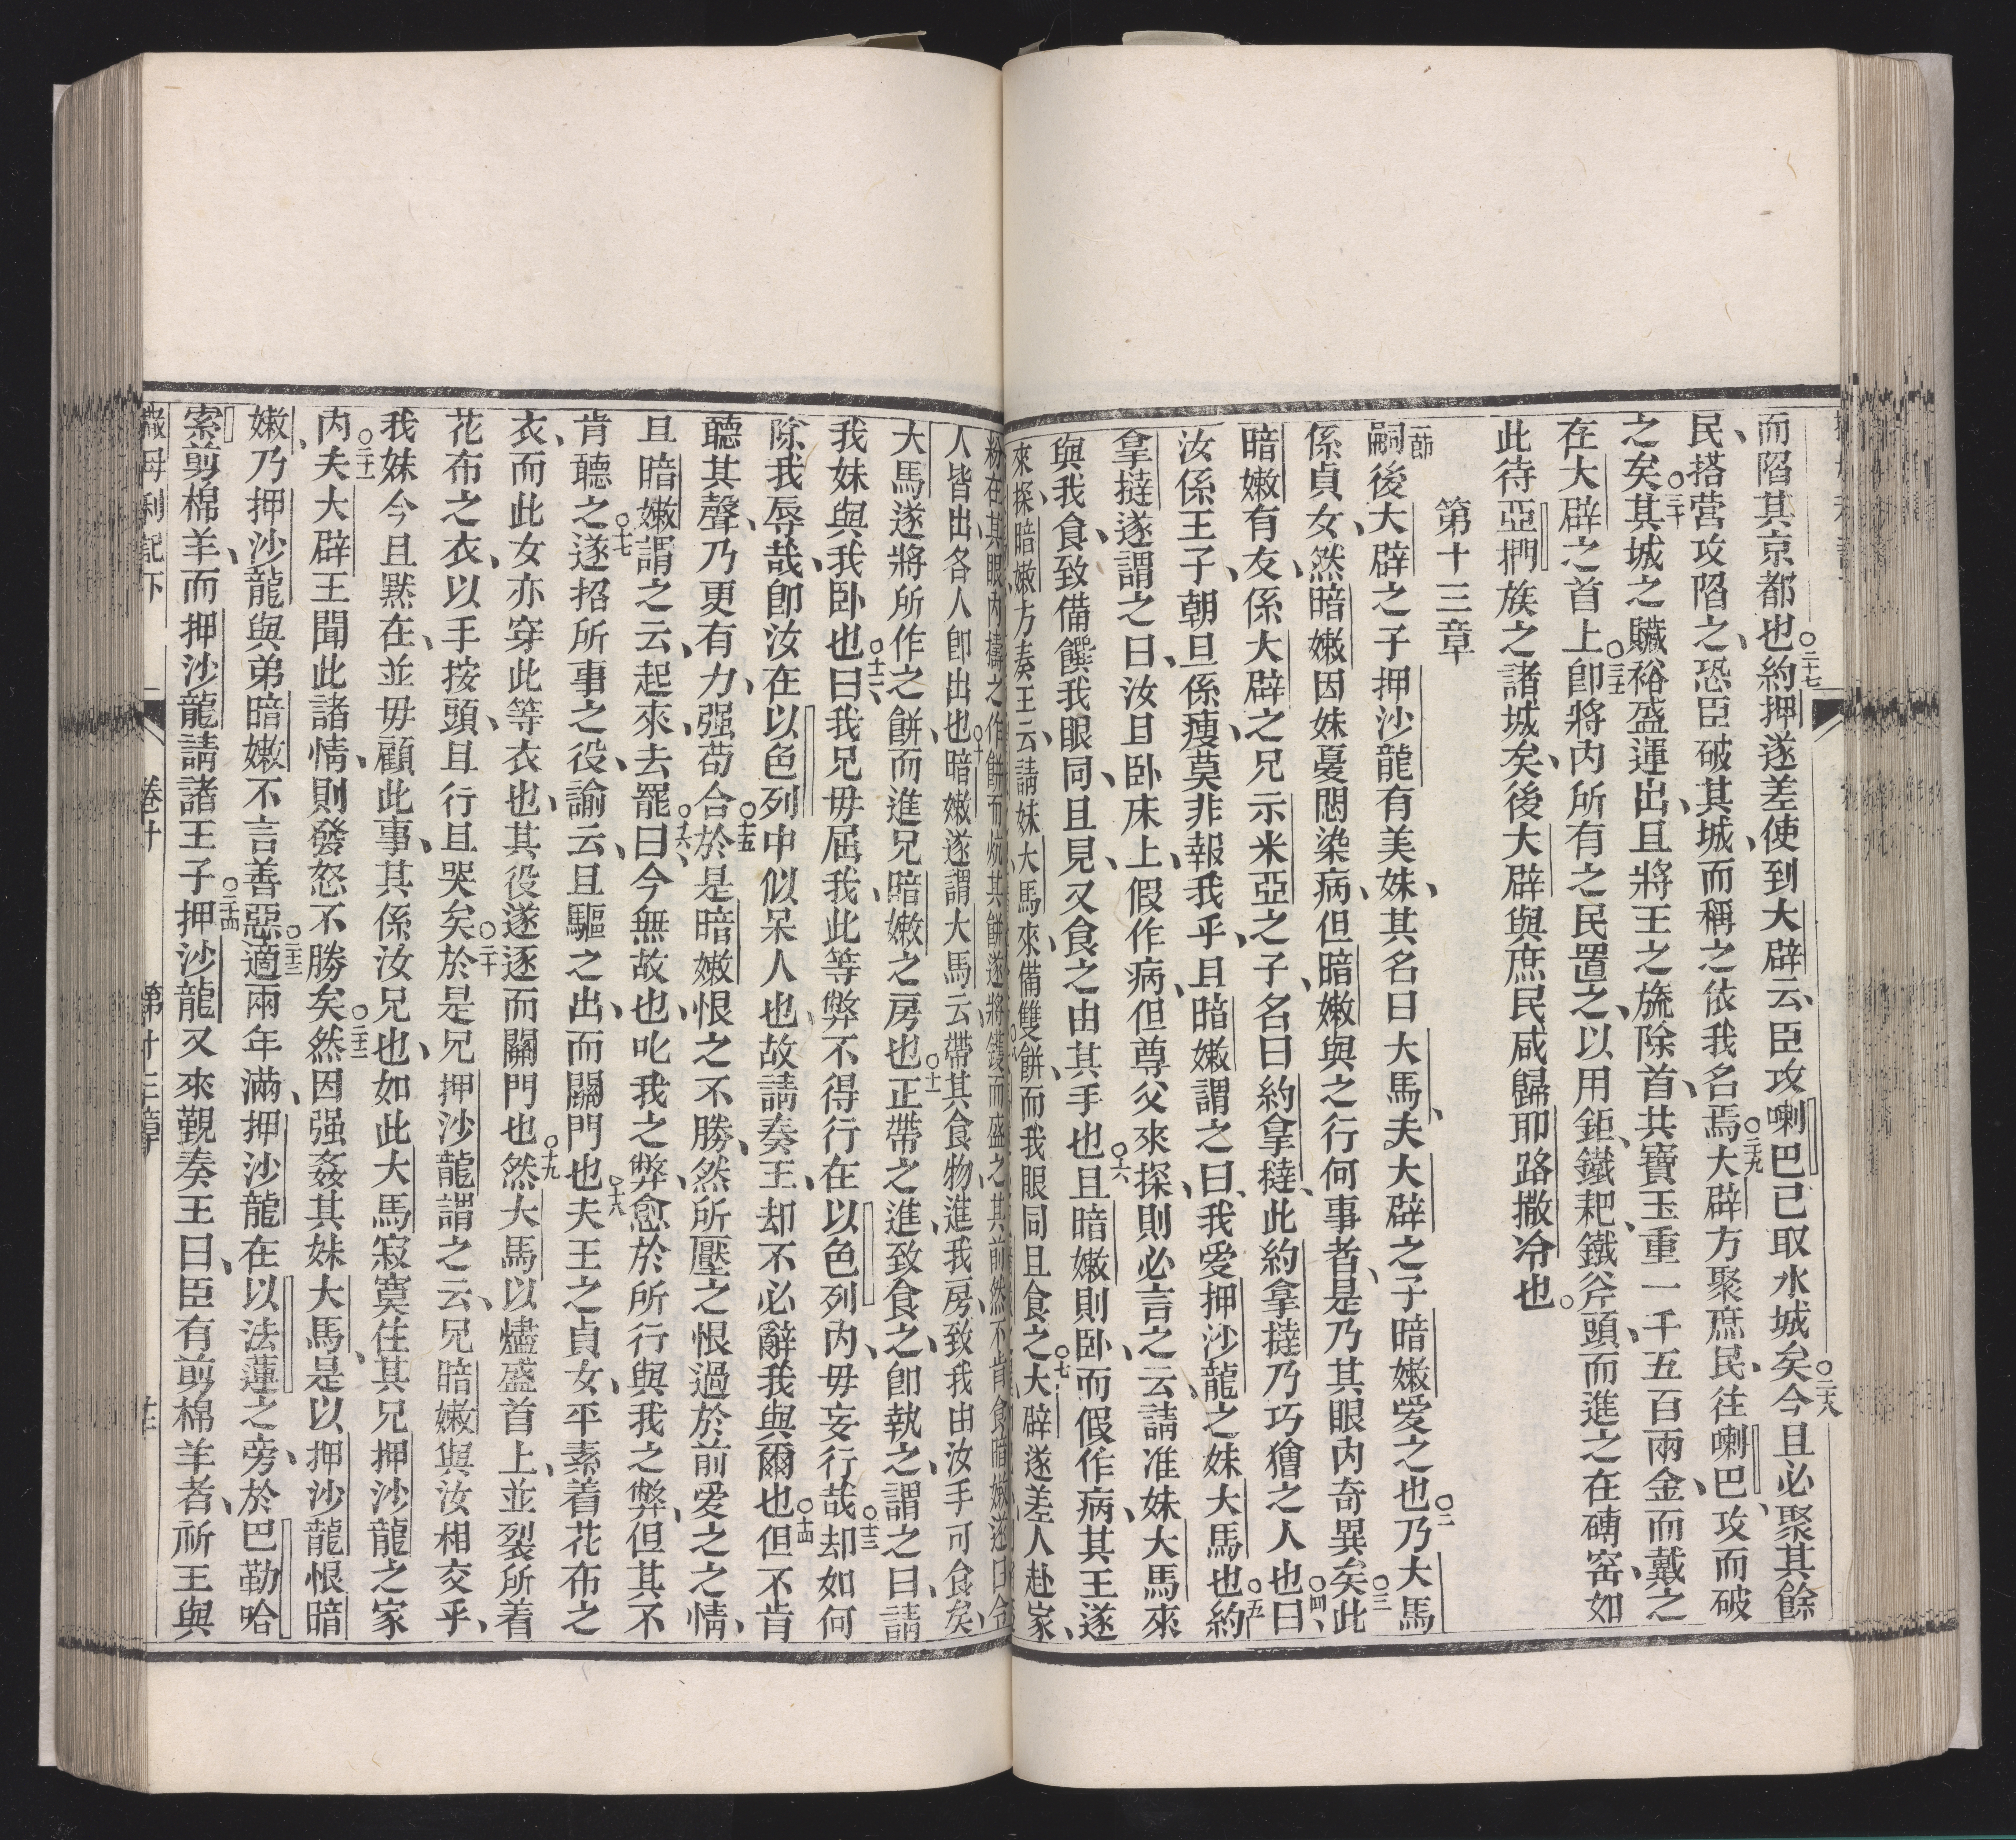 而陷其京都也○二十七約押遂差使到大辟云、臣攻喇巴已取水城矣○二十八今且必聚其餘
民、搭营攻陷之、恐臣破其城、而稱之依我名焉○二十九大辟方聚庶民、往喇巴、攻而破
之矣○三十其城之贜裕盛運出、且將王之旒除首、共寶玉重一千五百兩金、而戴之
在大辟之首上○三十一卽將內所有之民置之、以用鉅、鐵耙、鐵斧頭、而進之在磚窑、如
此待亞捫族之諸城矣、後大辟與庶民咸歸耶路撒冷也。
第十三章
一節嗣後大辟之子押沙龍有美妹、其名曰大馬、夫大辟之子暗嫩愛之也○二乃大馬
係貞女、然暗嫩因妹憂悶染病、但暗嫩與之行何事者、是乃其眼內奇異矣○三此
暗嫩有友、係大辟之兄示米亞之子、名曰約拿撻、此約拿撻乃巧獪之人也○四曰、
汝係王子、朝旦係瘦、莫非報我乎、且暗嫩謂之曰、我愛押沙龍之妹大馬也○五約
拿撻遂謂之曰、汝且卧床上、假作病、但尊父來探、則必言之云、請准妹大馬來
與我食、致備饌我眼同、且見、又食之由其手也○六且暗嫩則卧、而假作病、其王遂
來探、暗嫩方奏王云、請妹大馬來、備雙餅、而我眼同且食之○七大辟遂差人赴家、
粉在其眼內擣之、作餅而炕其餅、遂將鑊而盛之其前、然不肯食、暗嫩遂曰、令
人皆出、各人卽出也○十暗嫩遂謂大馬云、帶其食物、進我房、致我由汝手可食矣、
大馬遂將所作之餅、而進兄暗嫩之房也○十一正帶之進、致食之、卽執之、謂之曰、請
我妹與我卧也○十二曰、我兄毋屈我、此等弊不得行在以色列內、毋妄行哉○十三却如何
除我辱哉、卽汝在以色列中似呆人也、故請奏王、却不必辭我與爾也○十四但不肯
聽其聲、乃更有力、强苟合○十五於是暗嫩恨之不勝、然所壓之恨過於前愛之之情、
且暗嫩謂之云、起來、去罷○十六曰、今無故也、叱我之弊、愈於所行與我之弊、但其不
肯聽之○十七遂招所事之役、諭云、且驅之出、而關門也○十八夫王之貞女、平素着花布之
衣、而此女亦穿此等衣也、其役遂逐而關門也○十九然大馬以燼盛首上、並裂所着
花布之衣、以手按頭、且行且哭矣○二十於是兄押沙龍謂之云、兄暗嫩與汝相交乎、
我妹今且黙在、並毋顧此事、其係汝兄也、如此大馬寂寞住其兄押沙龍之家
內○二十一夫大辟王聞此諸情、則發怒不勝矣○二十二然因强姦其妹大馬、是以押沙龍恨暗
嫩、乃押沙龍與弟暗嫩不言善惡○二十三適兩年滿、押沙龍在以法蓮之旁、於巴勒哈
索剪棉羊、而押沙龍請諸王子○二十四押沙龍又來覲奏王曰、臣有剪棉羊者、祈王與
撒母利記下
卷十
第十三章